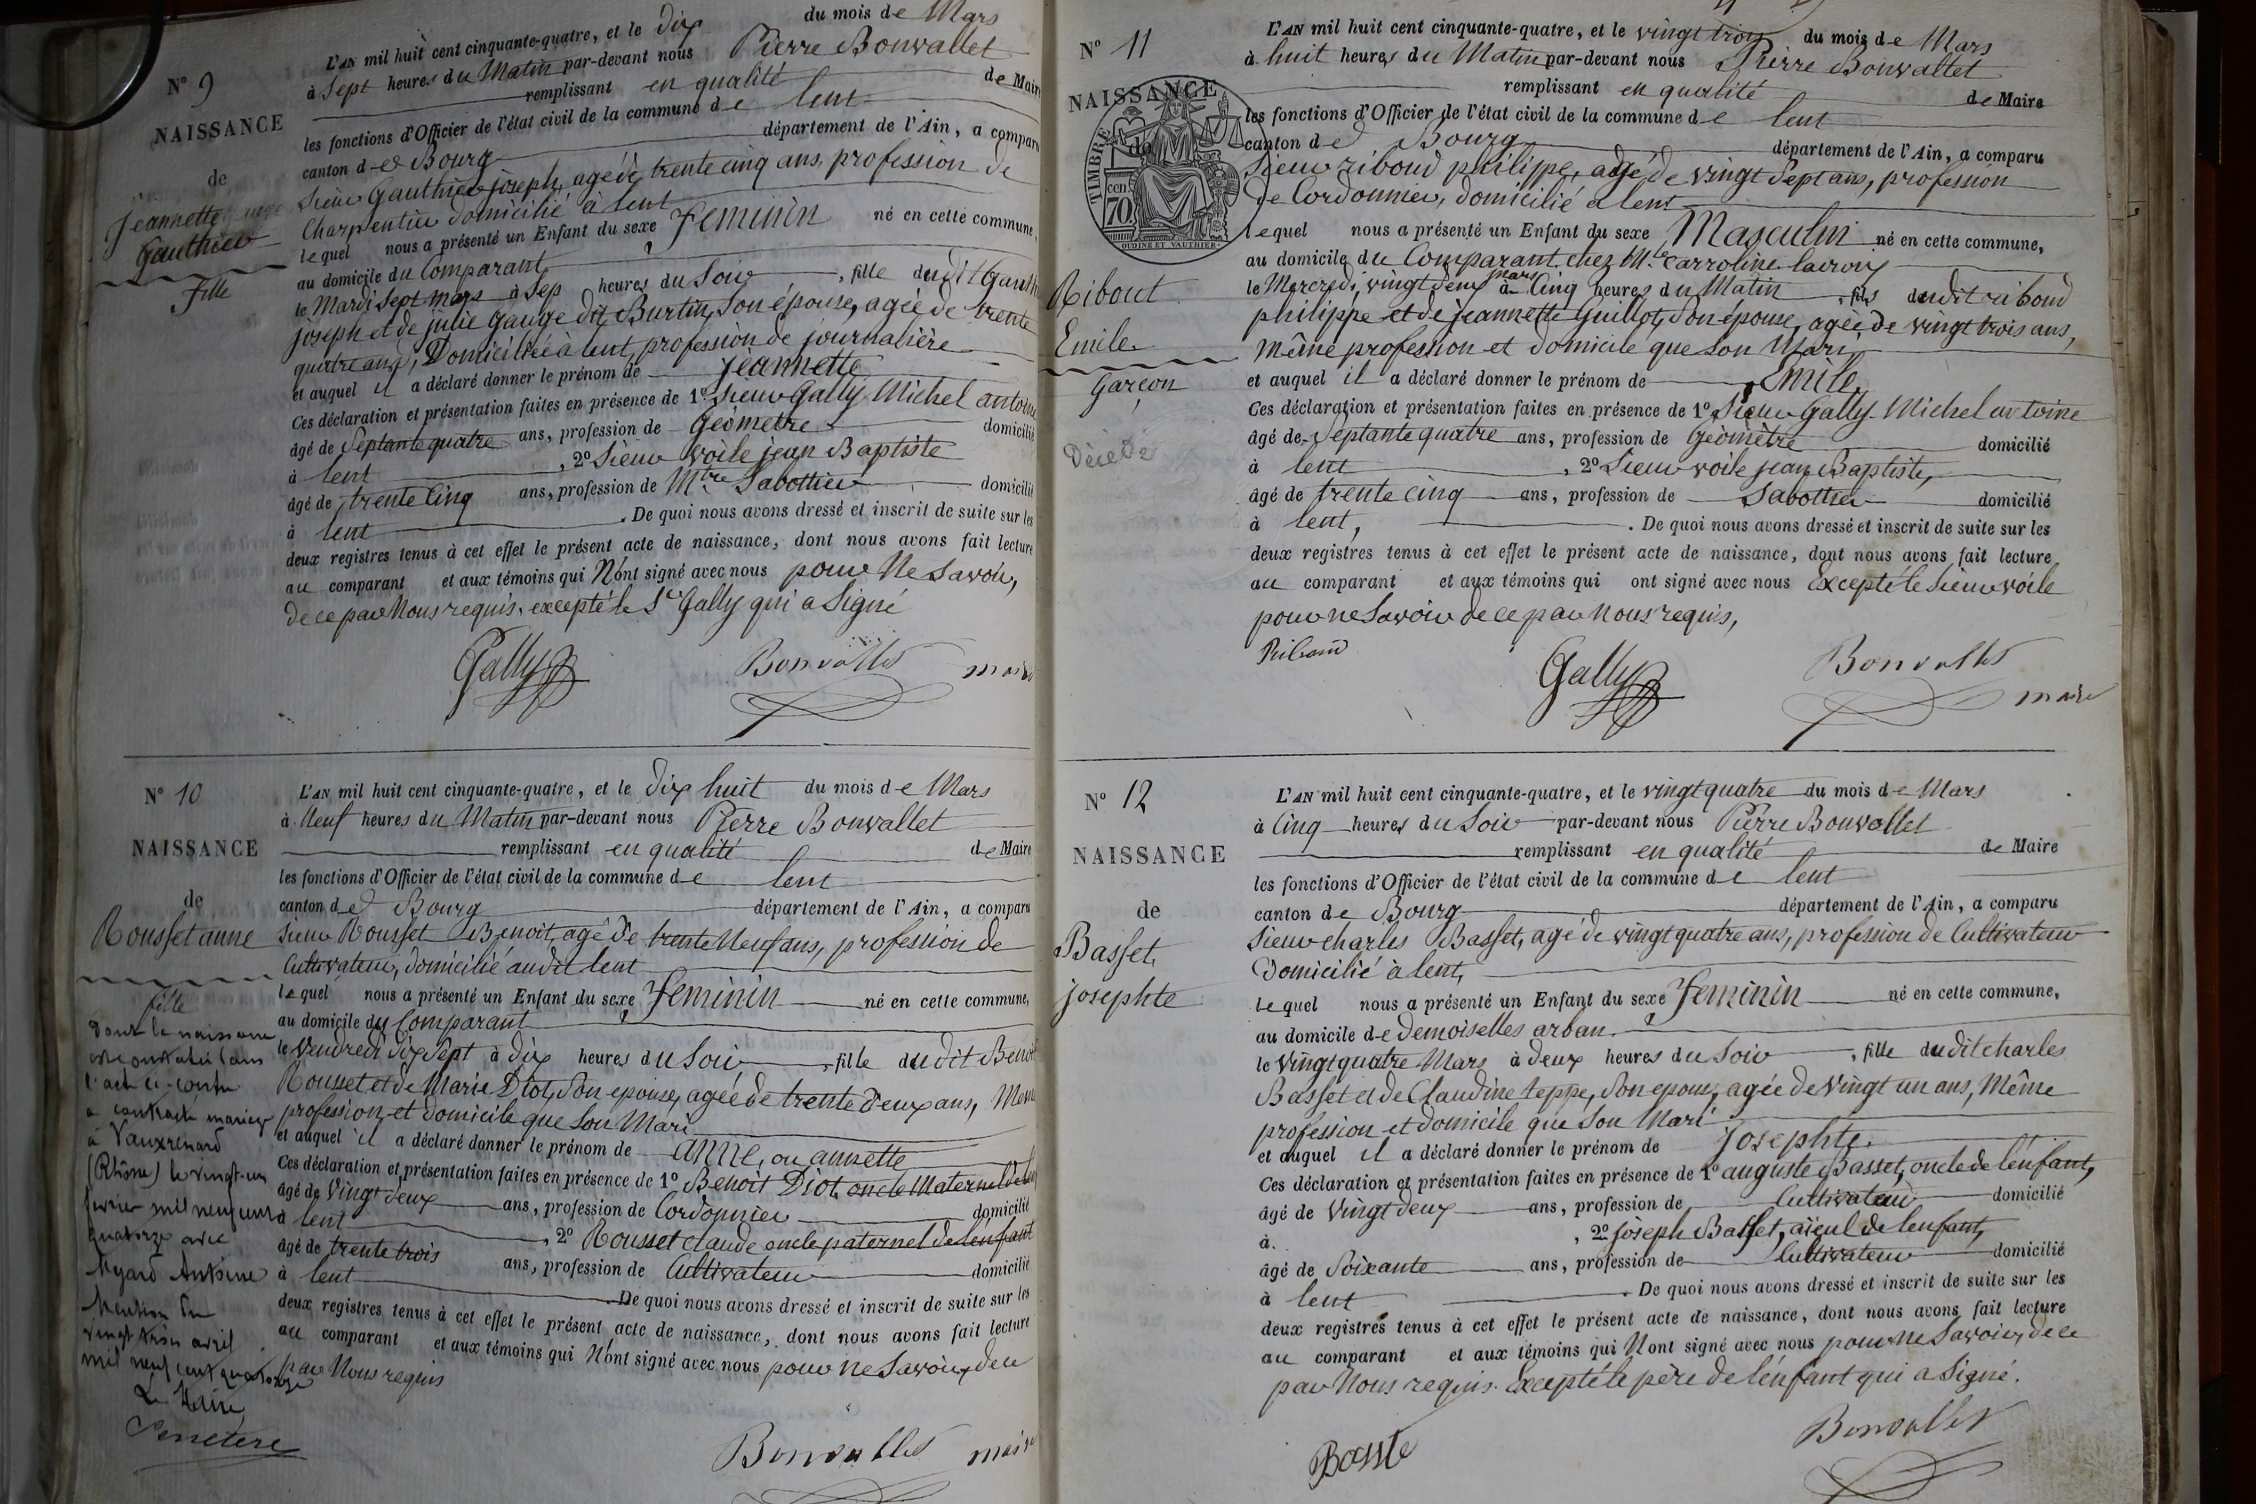 N° 9
NAISSANCE
de
Jeannette
Gauthier
Fille
L'AN mil huit cent cinquante-quatre, et le dix du mois de Mars
à Sept heures du Matin par-devant nous Pierre Bonvallet
remplissant en qualité de Maire
les fonctions d'Officier de l'état civil de la commune de lent
canton de Bourg département de l'Ain, a comparu
Sieur Gauthier joseph, agé de trente cinq ans, profession de
Charpentier domicilié à lent
lequel nous a présenté un Enfant du sexe Feminin né en cette commune,
au domicile du Comparant
le Mardi Sept mars à Sep heures du Soir, fille dudit Gauth
joseph et de julie gauge dit Burtin, Son épouse, agée de trente
quatre ans, Domiciliée à lent, profession de journalière
et auquel il a déclaré donner le prénom de Jeannette
Ces déclaration et présentation faites en présence de 1° Sieur Gally Michel antoine
âgé de Septante quatre ans, profession de Géomètre domicilié
à lent, 2° Sieur voile jean Baptiste
âgé de trente Cinq ans, profession de Mtre Sabottier domicilié
à lent. De quoi nous avons dressé et inscrit de suite sur les
deux registres tenus à cet effet le présent acte de naissance, dont nous avons fait lecture
au comparant et aux témoins qui N'ont signé avec nous pour Ne Savoir,
de ce par Nous requis. excepté le Sr Gally qui a Signé
Gally Bonvallet maire
N° 10
NAISSANCE
de
Rousset anne
fille
Dont la naissance
est constatée dans
l'acte ci-contre
a contracté mariage
à Vauxrenard
(Rhône) le vingt-un
février mil neuf cent
quatorze avec
Myard Antoine
Mention du
vingt trois avril
mil neuf cent quatorze
Le Maire
L'AN mil huit cent cinquante-quatre, et le dix huit du mois de Mars
à Neuf heures du Matin par-devant nous Pierre Bonvallet
remplissant en qualité de Maire
les fonctions d'Officier de l'état civil de la commune de lent
canton de Bourg département de l'Ain, a comparu
Sieur Rousset Benoit, agé de trente Neuf ans, profession de
Cultivateur, domicilié audit lent
lequel nous a présenté un Enfant du sexe Feminin né en cette commune,
au domicile du Comparant
le Vendredi dix Sept à dix heures du Soir, fille dudit Benoit
Rousset et de Marie Diot, Son epouse, agée de trente deux ans, Meme
profession et domicile que Son Mari
et auquel il a déclaré donner le prénom de anne, ou annette
Ces déclaration et présentation faites en présence de 1° Benoit Diot, oncle Maternel de
âgé de Vingt deux ans, profession de Cordonnier domicilié
à lent, 2° Rousset claude oncle paternel de l'enfant
âgé de trente trois ans, profession de Cultivateur domicilié
à lent. De quoi nous avons dressé et inscrit de suite sur les
deux registres tenus à cet effet le présent acte de naissance, dont nous avons fait lecture
au comparant et aux témoins qui N'ont signé avec nous pour Ne Savoir, de ce
par Nous requis
Bonvallet maire
N° 11
NAISSANCE
de
TIMBRE
cen
70
OUDINE ET VAUTHIER
Ribout
Emile
Garçon
Décédé
L'AN mil huit cent cinquante-quatre, et le vingt trois du mois de Mars
à huit heures du Matin par-devant nous Pierre Bonvallet
remplissant en qualité de Maire
les fonctions d'Officier de l'état civil de la commune de lent
canton de Bourg département de l'Ain, a comparu
Sieur riboud philippe, agé de vingt Sept ans, profession
de Cordonnier, domicilié à lent
lequel nous a présenté un Enfant du sexe Masculin né en cette commune,
au domicile du Comparant chez Mle Carroline lacroix
le Mercredi, vingt deux mars à Cinq heures du Matin, fils dudit riboud
philippe et de jeannette Guillot, Son épouse, agée de vingt trois ans,
Même profession et domicile que Son Mari
et auquel il a déclaré donner le prénom de Emile,
Ces déclaration et présentation faites en présence de 1° Sieur Gally Michel antoine
âgé de Septante quatre ans, profession de Géomètre domicilié
à lent, 2° Sieur voile jean Baptiste,
âgé de trente cinq ans, profession de Sabottier domicilié
à lent, . De quoi nous avons dressé et inscrit de suite sur les
deux registres tenus à cet effet le présent acte de naissance, dont nous avons fait lecture
au comparant et aux témoins qui ont signé avec nous Excepté le Sieur voile
pour ne Savoir de ce par Nous requis,
Riboud Gally Bonvallet
maire
N° 12
NAISSANCE
de
Basset,
josephte
L'AN mil huit cent cinquante-quatre, et le vingt quatre du mois de Mars
à Cinq heures du Soir par-devant nous Pierre Bonvallet
remplissant en qualité de Maire
les fonctions d'Officier de l'état civil de la commune de lent
canton de Bourg département de l'Ain, a comparu
Sieur charles Basset, agé de vingt quatre ans, profession de Cultivateur
Domicilié à lent,
lequel nous a présenté un Enfant du sexe Feminin né en cette commune,
au domicile de Demoiselles arban
le Vingt quatre Mars à deux heures du Soir, fille dudit charles
Basset et de Claudine teppe, Son epouse, agée de Vingt un ans, Même
profession et domicile que Son Mari
et auquel il a déclaré donner le prénom de josephte.
Ces déclaration et présentation faites en présence de 1° auguste Basset, oncle de l'enfant,
âgé de Vingt deux ans, profession de Cultivateur domicilié
à , 2° joseph Basset, aïeul de l'enfant,
âgé de Soixante ans, profession de Cultivateur domicilié
à lent. De quoi nous avons dressé et inscrit de suite sur les
deux registres tenus à cet effet le présent acte de naissance, dont nous avons fait lecture
au comparant et aux témoins qui N'ont signé avec nous pour Ne Savoir, de ce
par Nous requis. Excepté le père de l'énfant qui a Signé.
Basset Bonvallet